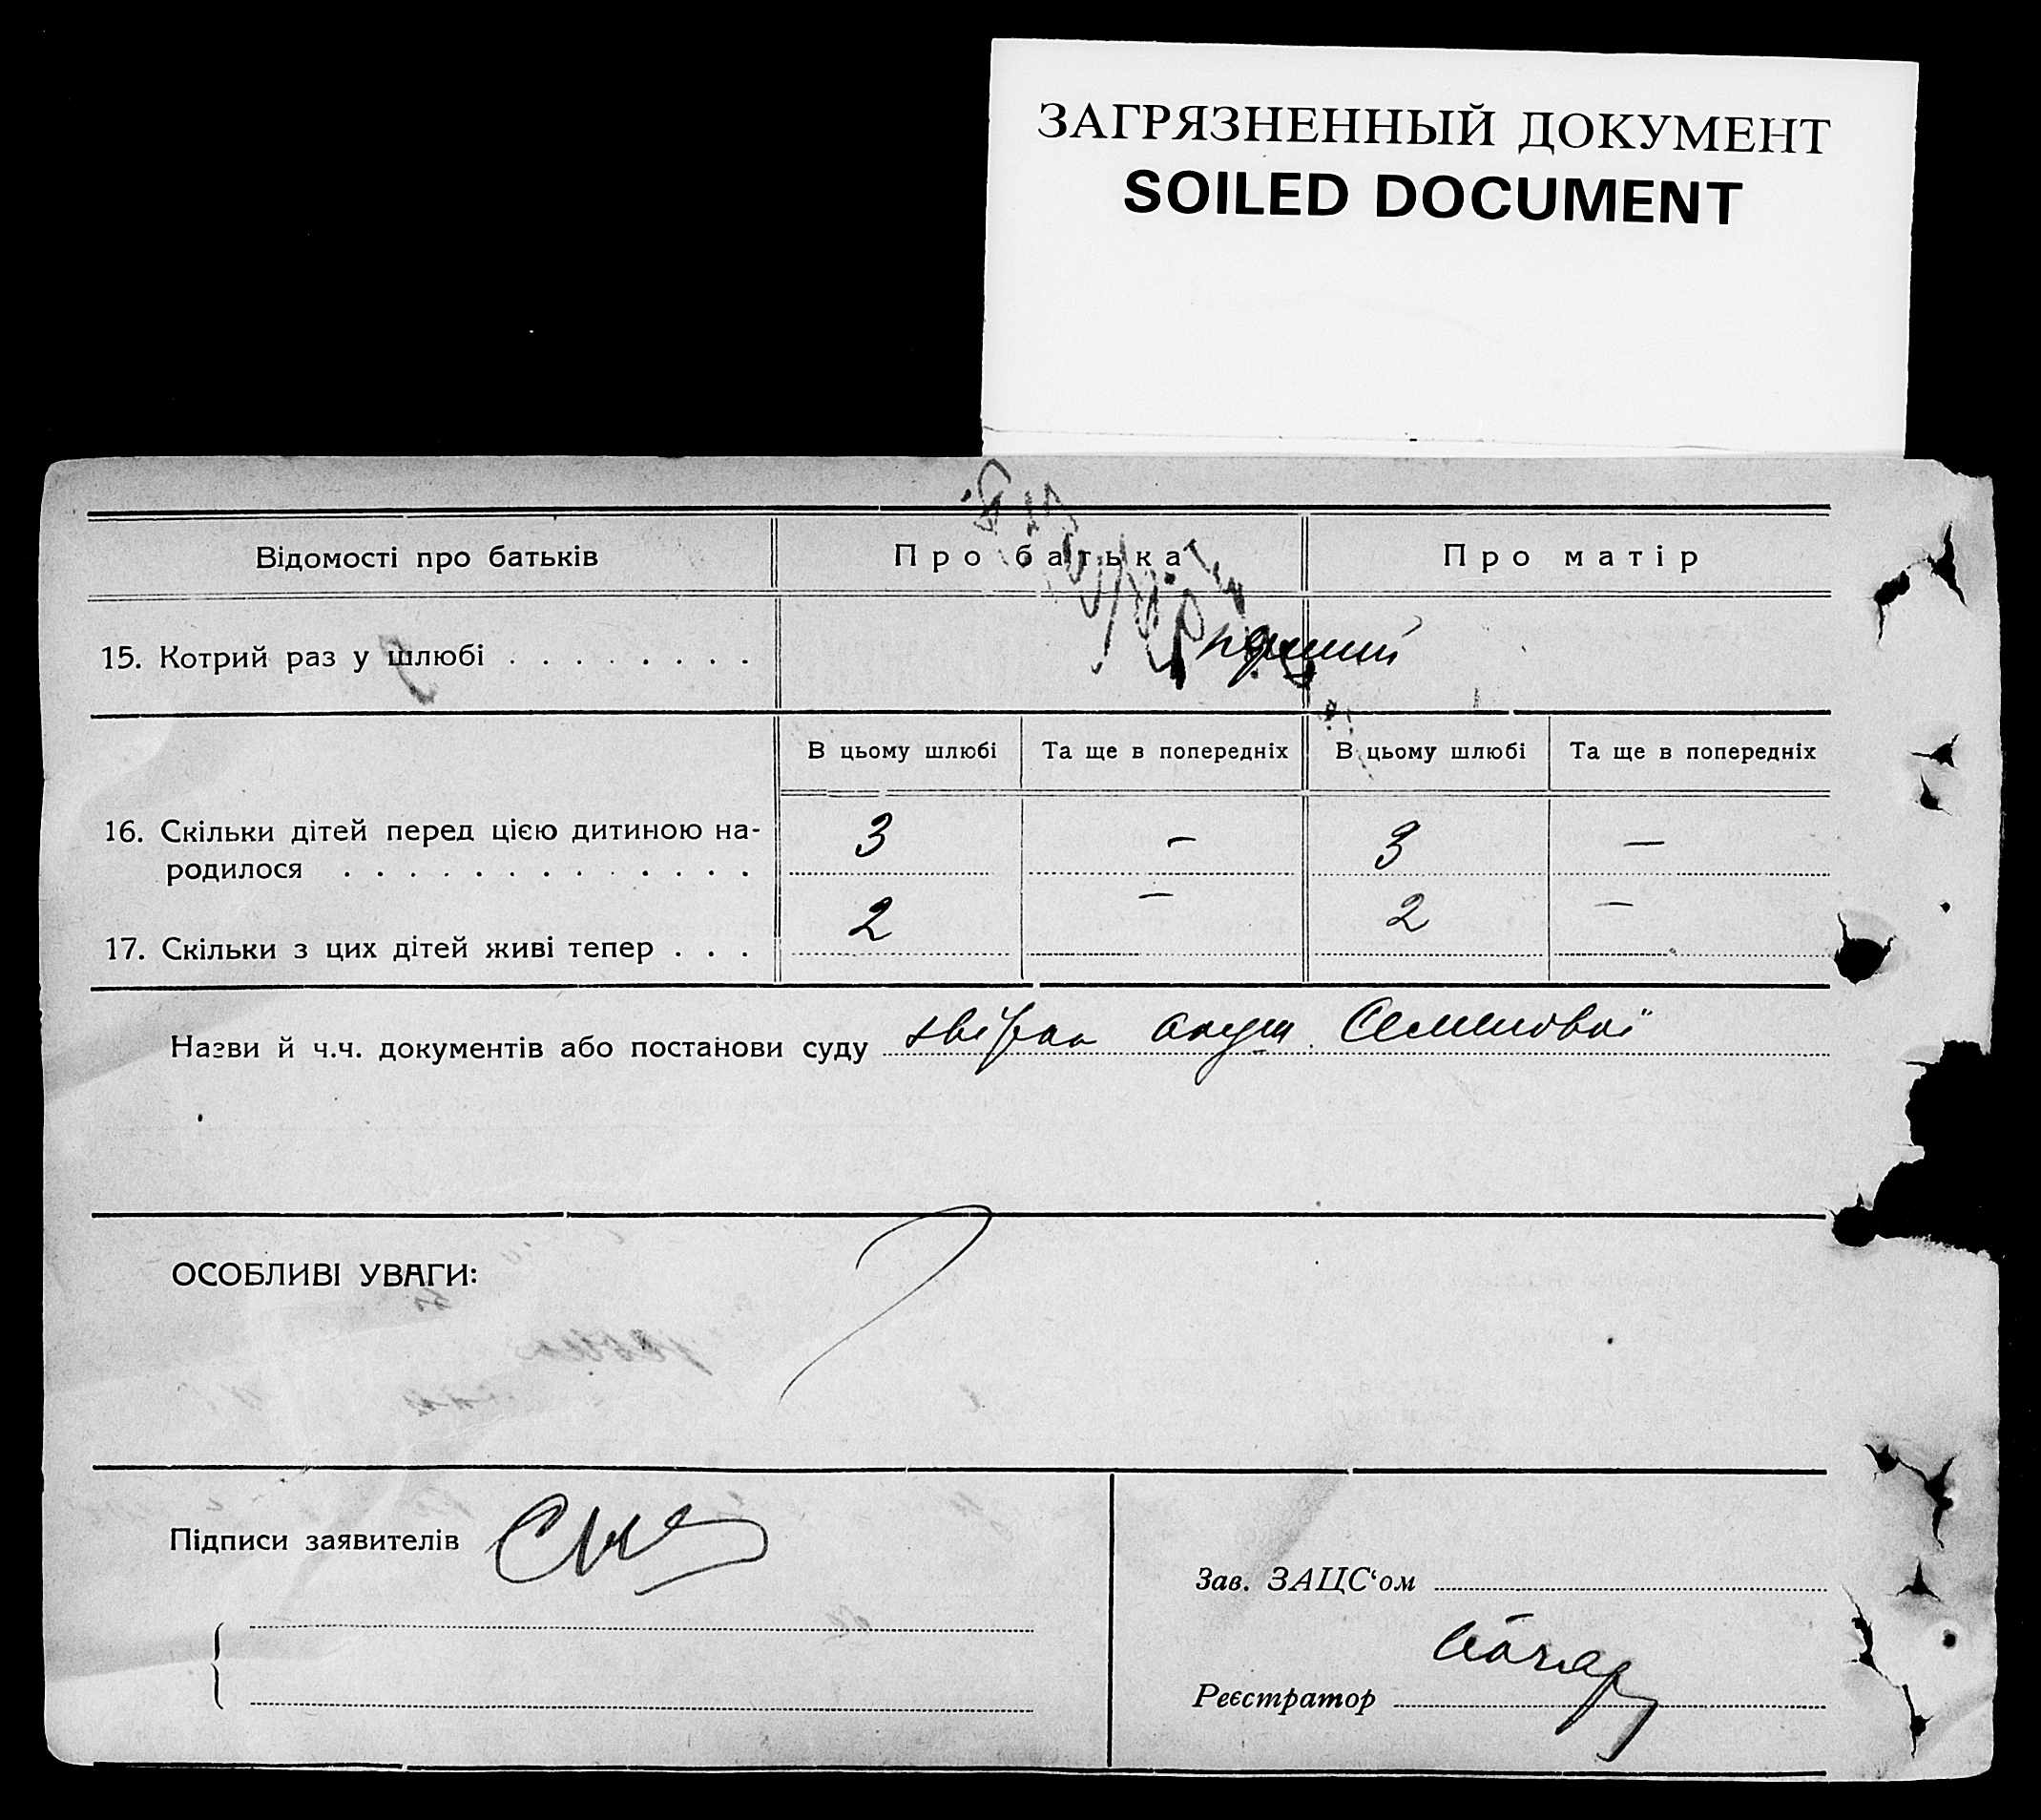 ЗАГРЯЗНЕННЫЙ ДОКУМЕНТ
SOILED DOCUMENT
Відомості про батьків Про батька Про матір
15. Котрий раз у шлюбі . . . . . . . . перший
В цьому шлюбі Та ще в попередніх В цьому шлюбі Та ще в попередніх
16. Скільки дітей перед цією дитиною на-
родилося . . . . . . . . . . . . . 3 – 3 –
17. Скільки з цих дітей живі тепер . . . 2 – 2 –
Назви й ч.ч. документів або постанови суду
ОСОБЛИВІ УВАГИ:
Підписи заявителів
Зав. ЗАЦС‘ом
Реєстратор